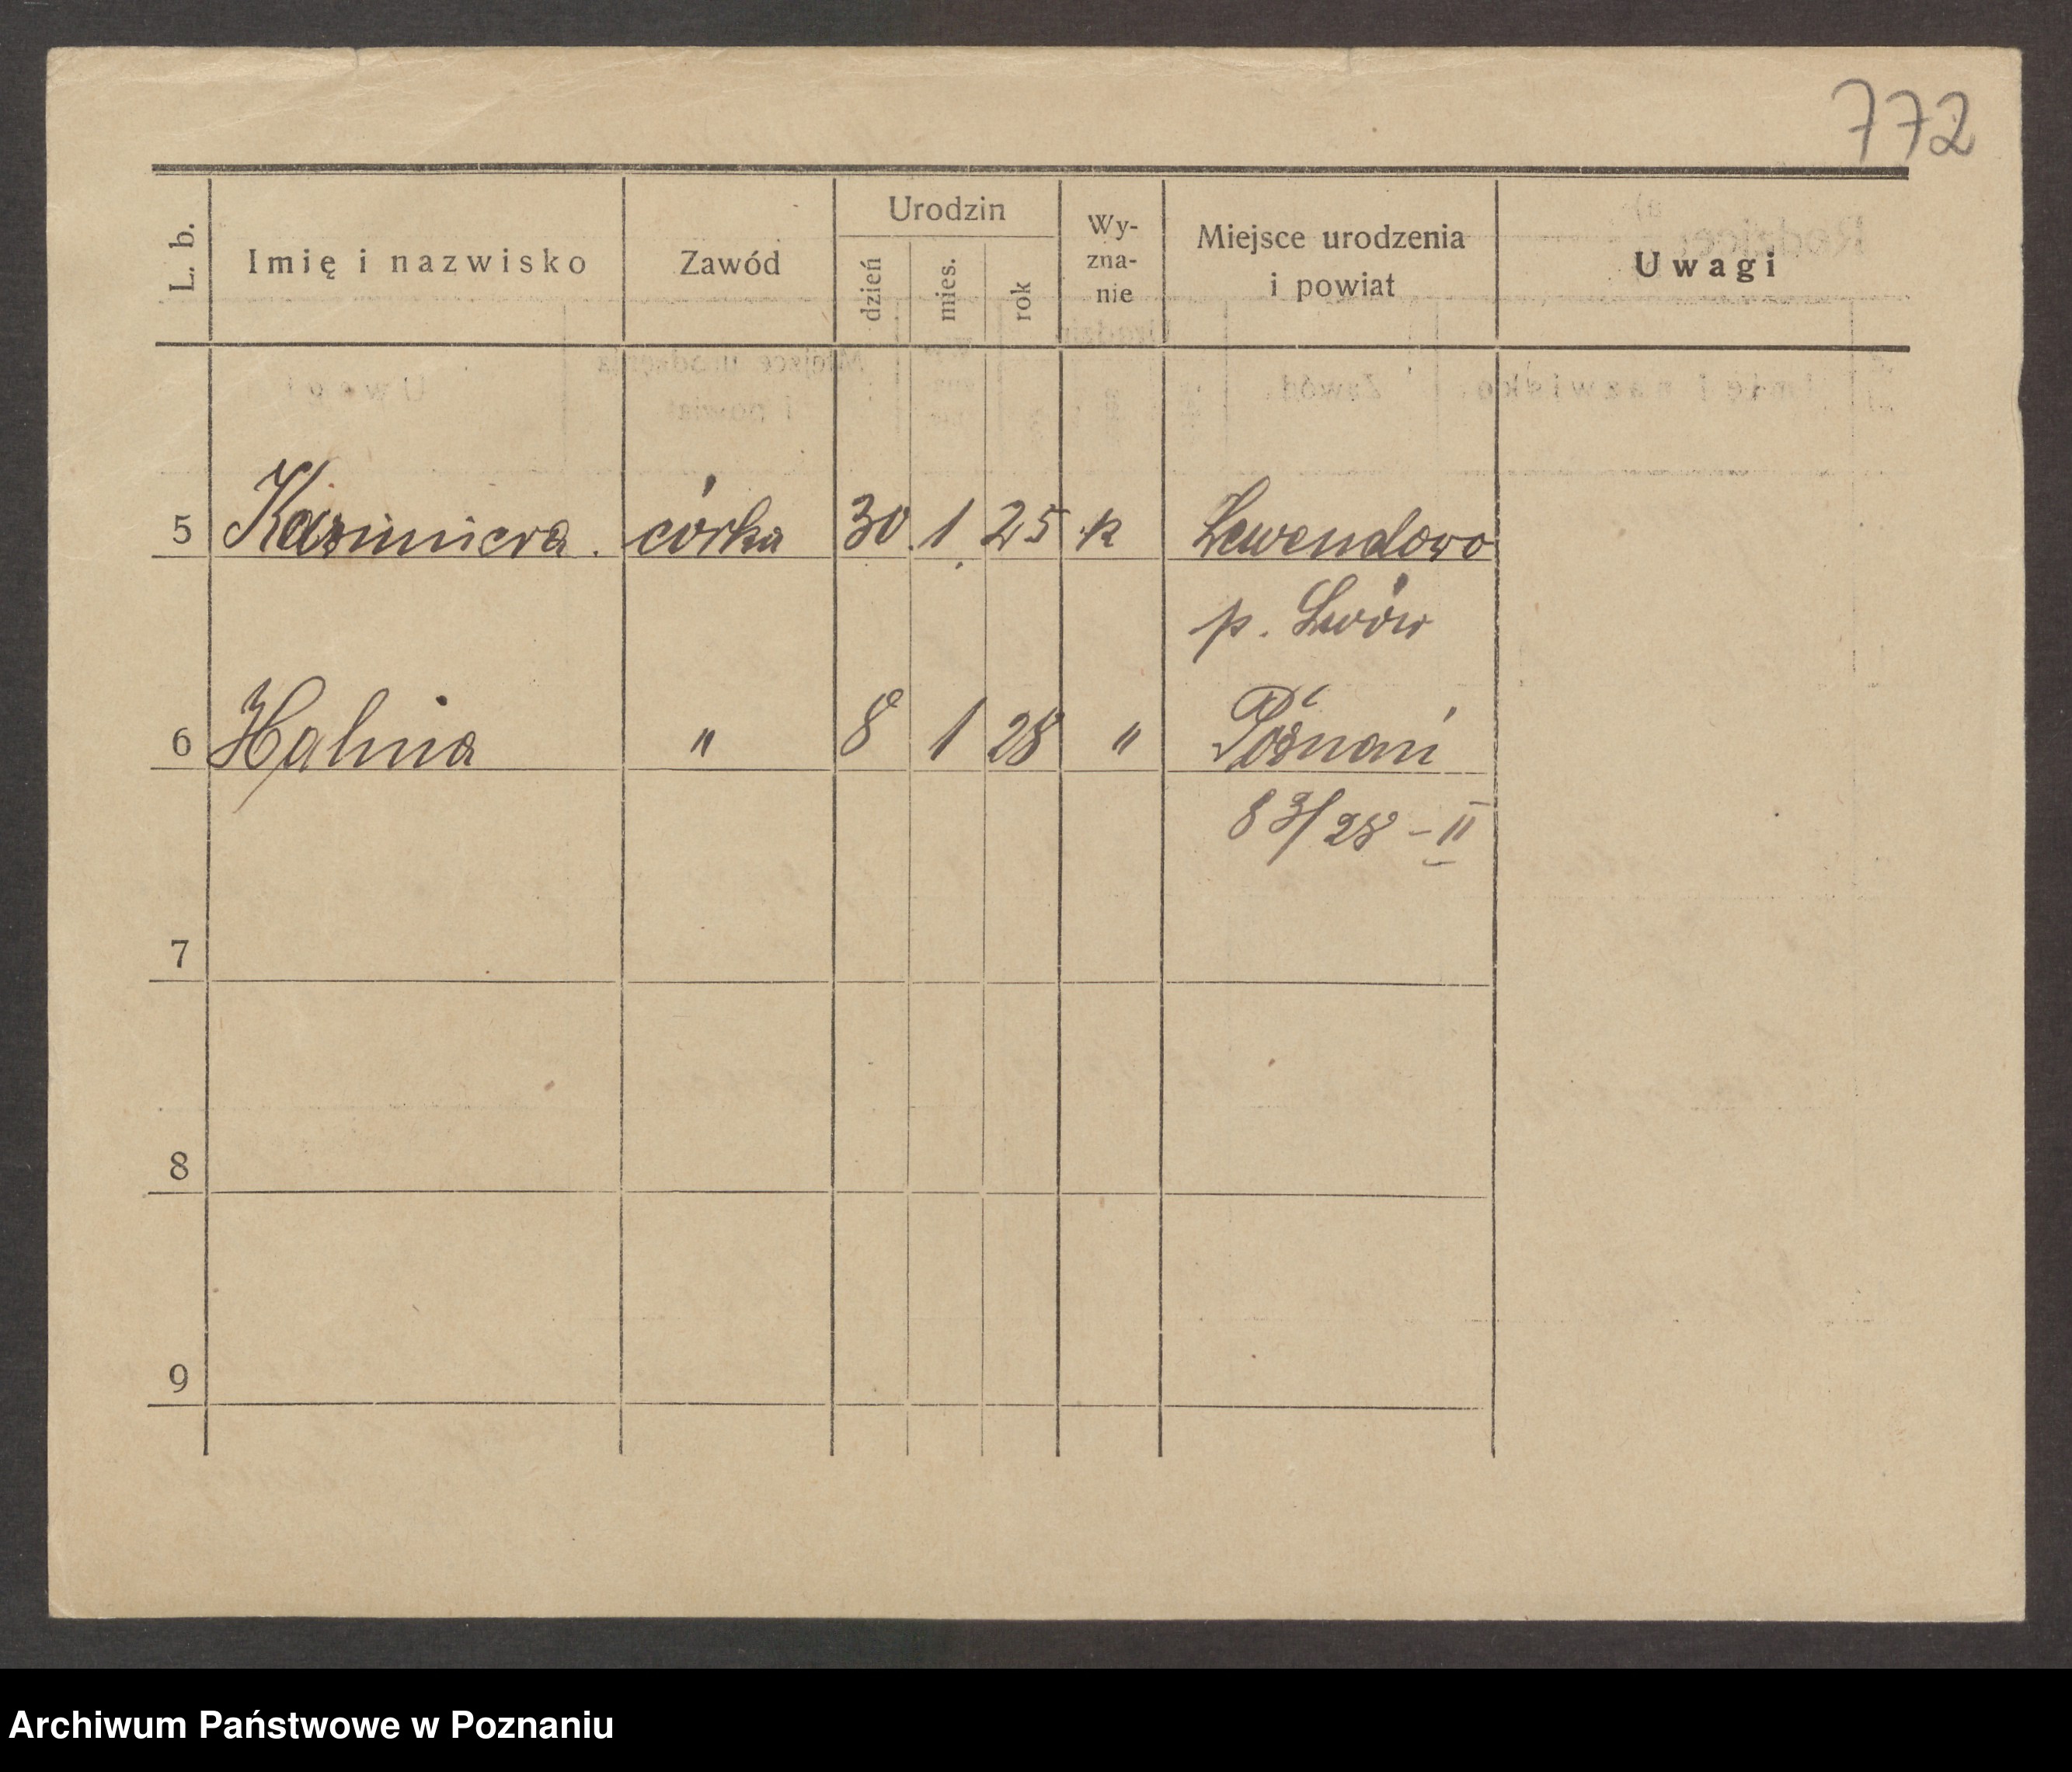 772
L. b.
Imię i nazwisko
Zawód
Urodzin
dzień
mies.
rok
Wy-
zna-
nie
Miejsce urodzenia
i powiat
Uwagi
5 Kazimiera. córka 30 1 25 k Lewendowo
p. Lwów
6 Halina " 8 1 28 " Poznań
83/28 - II
7
8
9
Archiwum Państwowe w Poznaniu